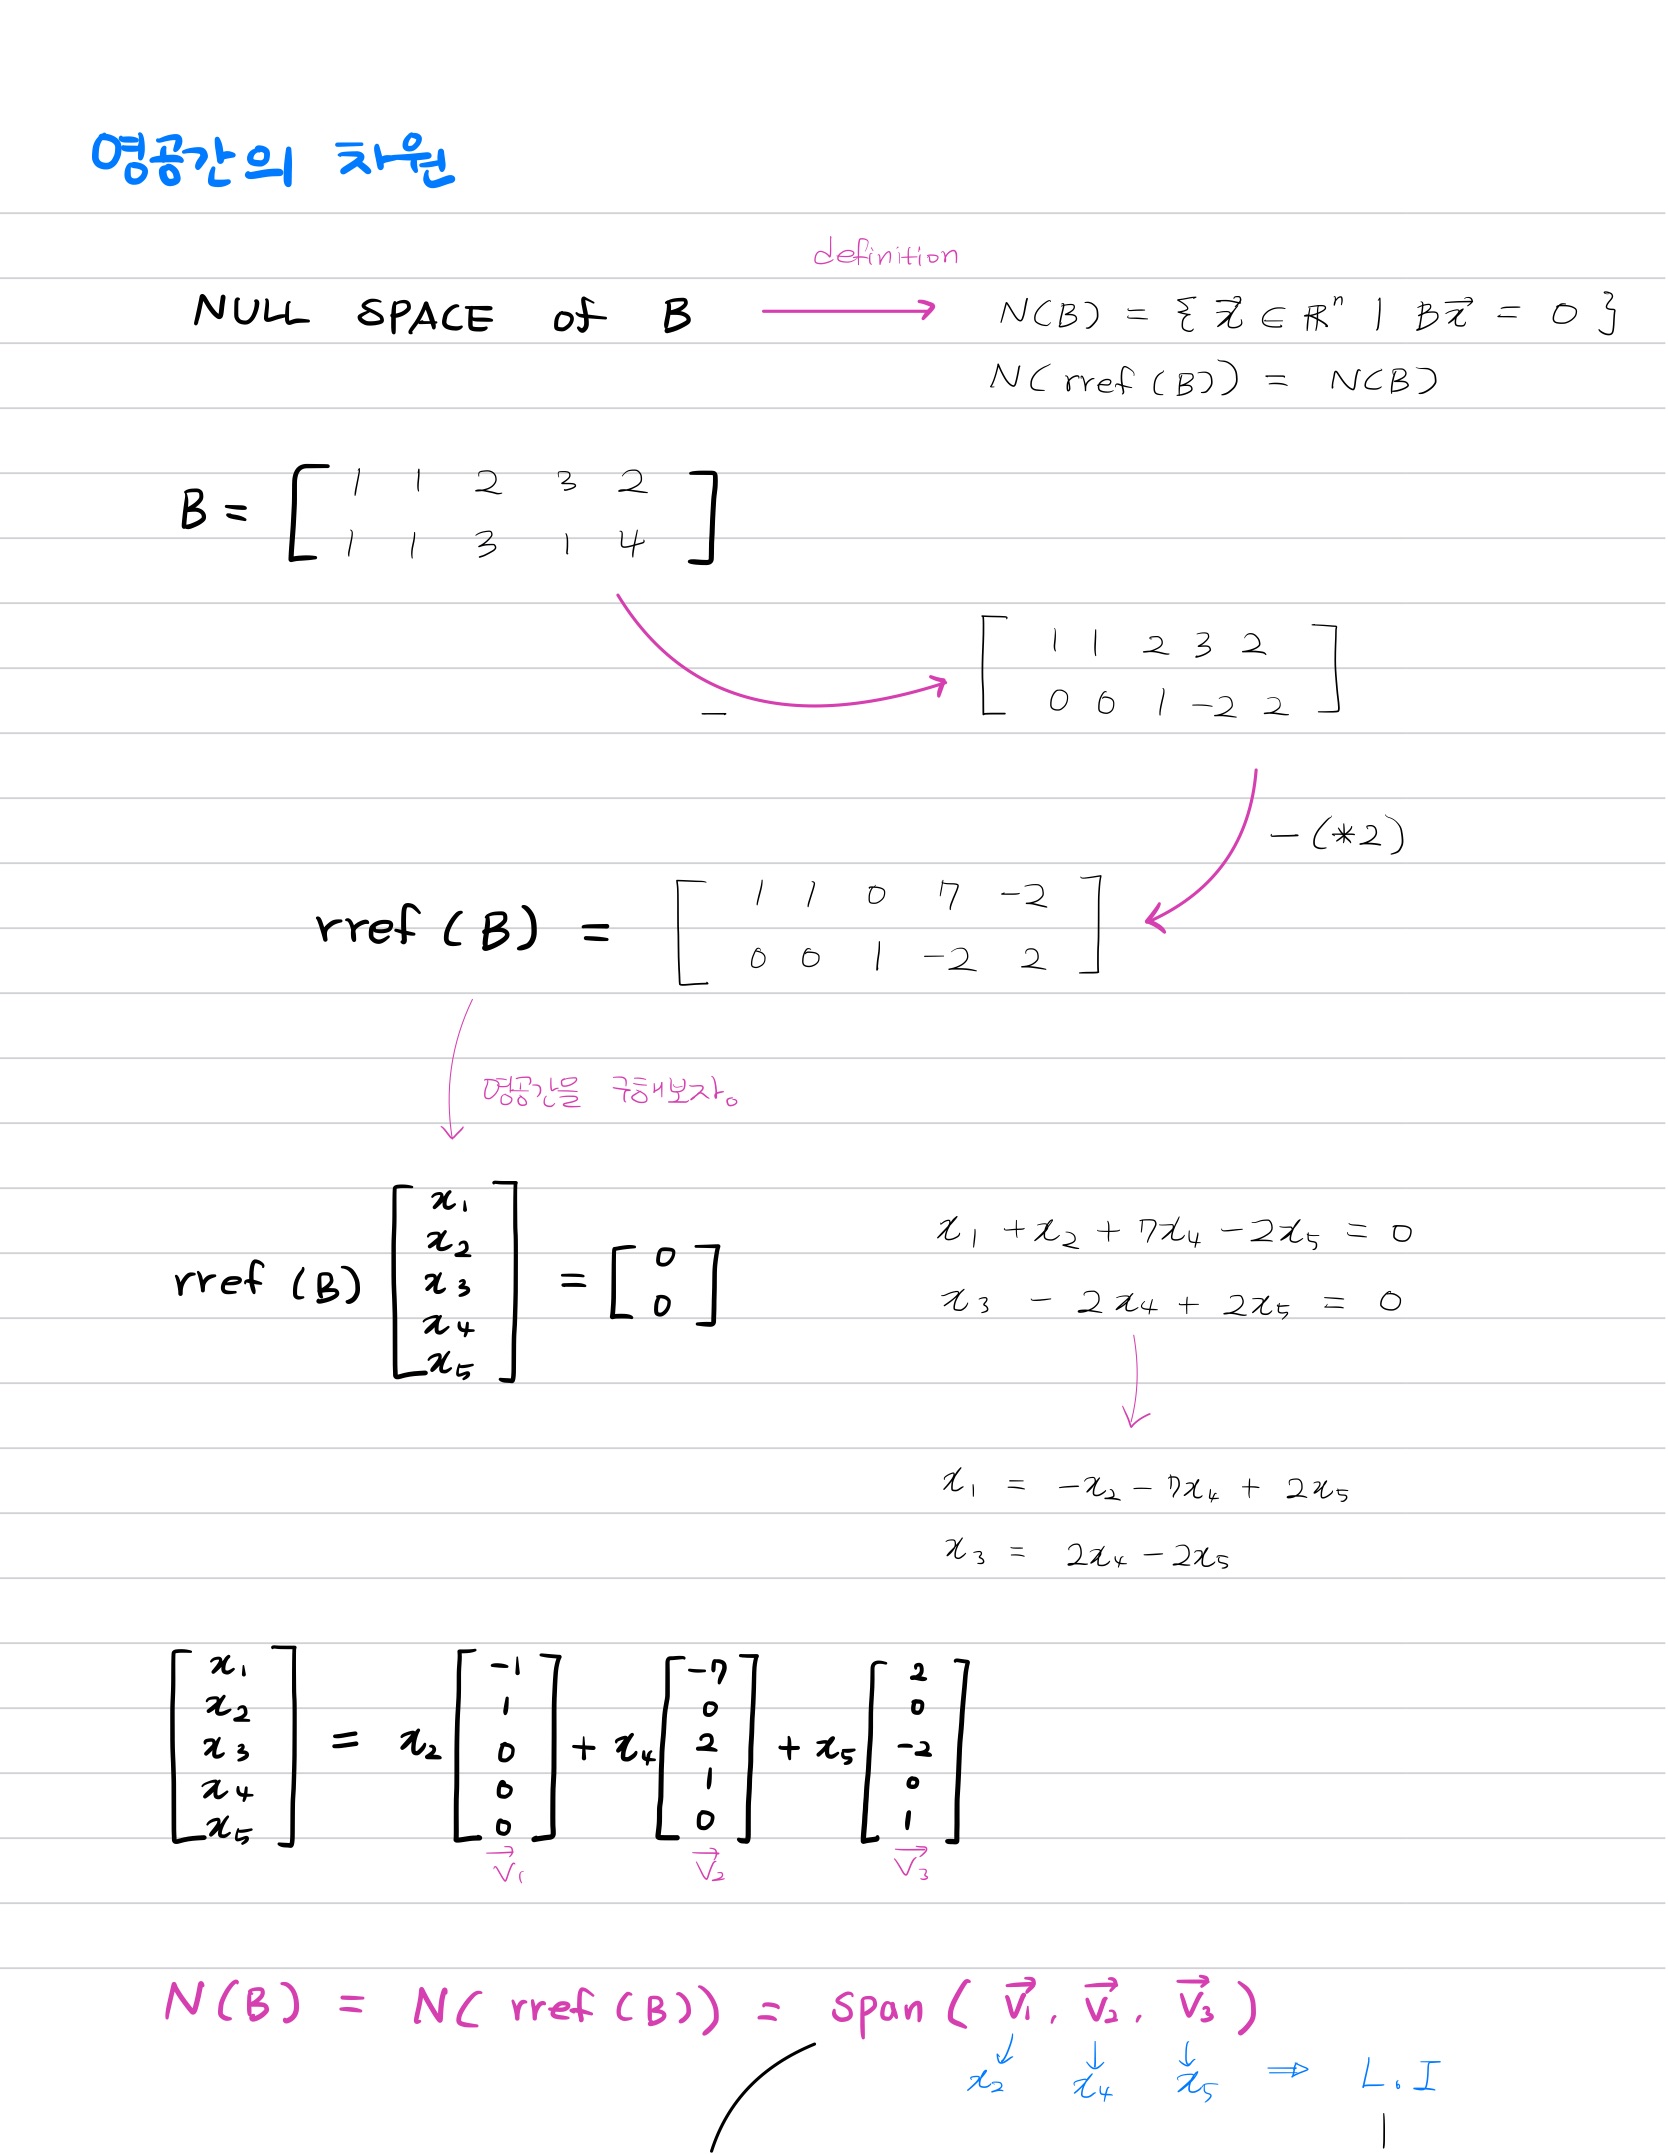 영공간의 차원
definition
NULL SPACE of B → N(B) = { x⃗ ∈ ℝⁿ | Bx⃗ = 0 }
N(rref(B)) = N(B)
B = [ 1 1 2 3 2
1 1 3 1 4 ]
[ 1 1 2 3 2
0 0 1 -2 2 ]
−
−(*2)
rref(B) = [ 1 1 0 7 -2
0 0 1 -2 2 ]
영공간을 구해보자。
rref(B) [ x₁ x₂ x₃ x₄ x₅ ] = [ 0 0 ]
x₁ + x₂ + 7x₄ − 2x₅ = 0
x₃ − 2x₄ + 2x₅ = 0
x₁ = −x₂ − 7x₄ + 2x₅
x₃ = 2x₄ − 2x₅
[ x₁ x₂ x₃ x₄ x₅ ] = x₂ [ -1 1 0 0 0 ] + x₄ [ -7 0 2 1 0 ] + x₅ [ 2 0 -2 0 1 ]
v⃗₁ v⃗₂ v⃗₃
N(B) = N(rref(B)) = span( v⃗₁, v⃗₂, v⃗₃ )
x₂ x₄ x₅ ⇒ L.I